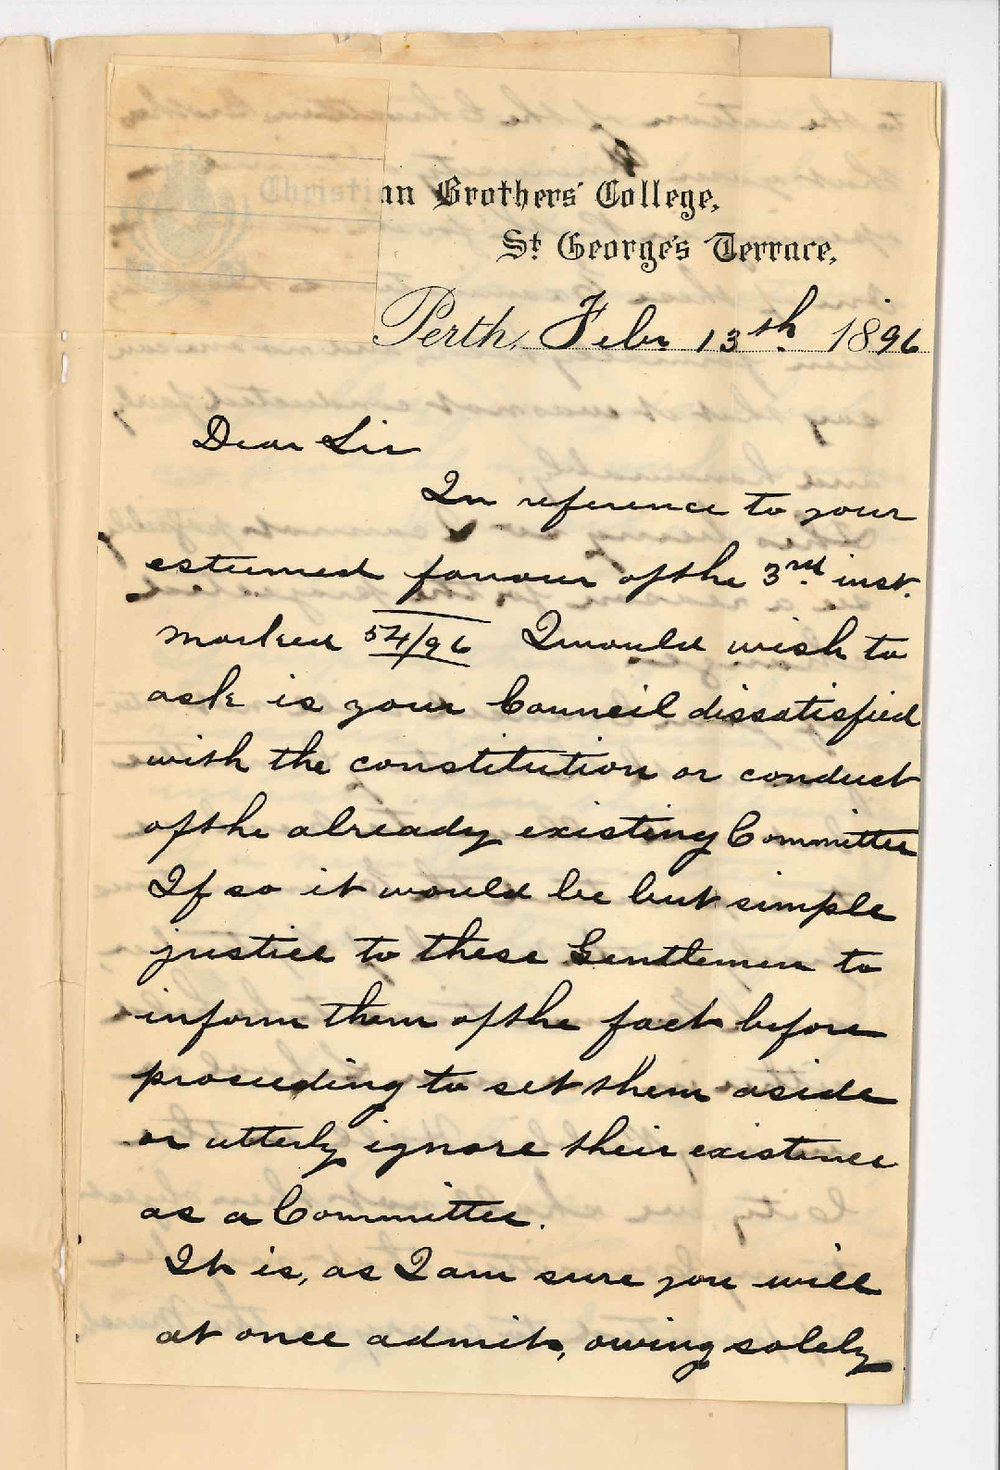 Christian Brothers' College,
St. George's Terrace,
Perth, Feby 13th. 1896
Dear Sir
In reference to your
esteemed favour of the 3rd. inst.
marked 54/96 I would wish to
ask is your Council dissatisfied
with the constitution or conduct
of the already existing Committee
If so it would be but simple
justice to these Gentlemen to
inform them of the fact before
proceeding to set them aside
or utterly ignore their existence
as a Committee.
It is, as I am sure you will
at once admit, owing solely